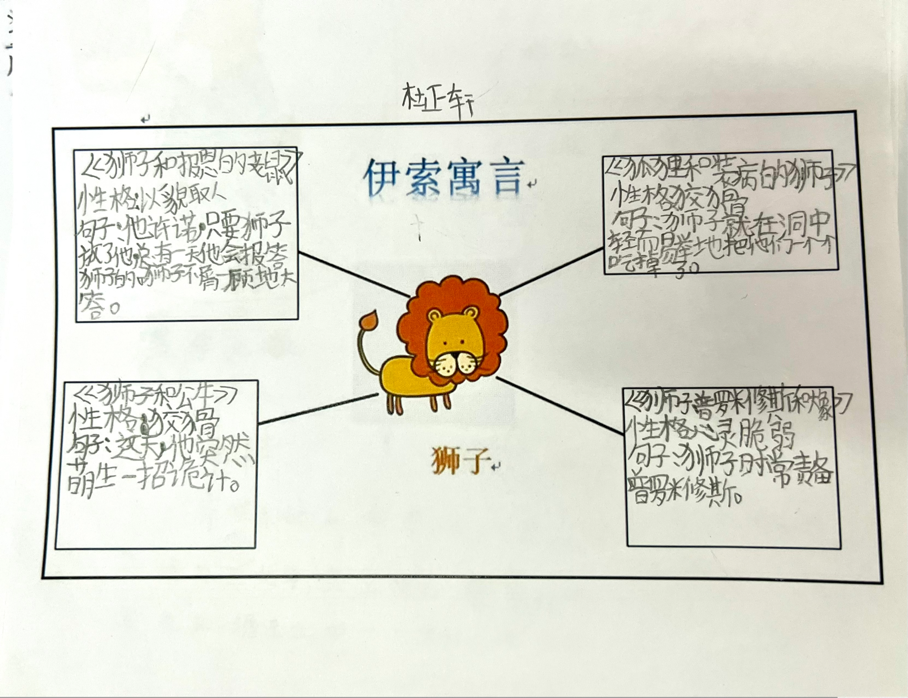 杜正轩
伊索寓言
《狮子和报恩的老鼠》
性格:以貌取人
句子:他许诺,只要狮子
放了他,总有一天他会报答
狮子的。狮子不屑一顾地大
答。
《狐狸和装病的狮子》
性格:狡猾
句子:狮子就在洞中
轻而易举地把他们一个个
吃掉了。
《狮子和公牛》
性格:狡猾
句子:这天,他突然
萌生一招诡计。
《狮子普罗米修斯和象》
性格:心灵脆弱
句子:狮子时常责备
普罗米修斯。
狮子